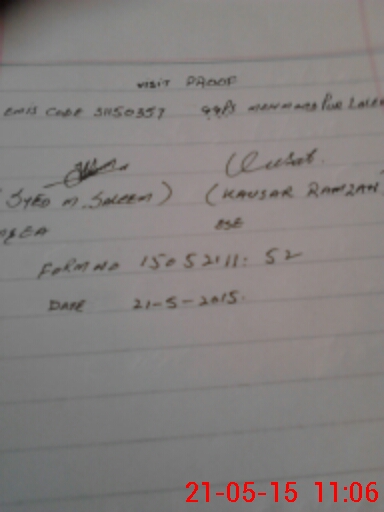 VISIT PROOF
EMIS CODE 31150357 GGPS
(SYED M. SALEEM) (KAUSAR RAMZAN)
MGEA ESE
FORM NO 15052111: 52
DATE 21-5-2015.
21-05-15 11:06